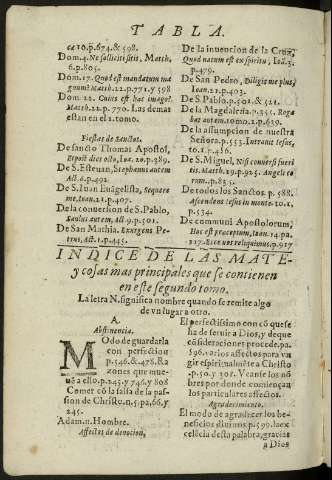 TABLA.
ca 10. p. 674. & 598.
Dom. 4. Ne solliciti sitis, Matth.
6. p. 805.
Dom. 17. Quod est mandatum ma
gnum? Matth. 22. p. 771. y 598
Dom. 22. Cuius est hæc imago?
Matth. 22. p. 770. Las demas
estan en el 1. tomo.
Fiestas de Sanctos.
De sancto Thomas Apostol,
Et post dies octo, Ioa. 20. p. 389.
De S. Esteuan, Stephanus autem
Act. 6. p. 402.
De S. Iuan Euāgelista, Sequere
me, Ioan. 21. p. 407.
De la conuersion de S. Pablo,
Saulus autem, Act. 9. p. 501.
De San Mathia. Exurgens Pe-
trus, Act. 1. p. 445.
De la inuencion de la Cruz,
Quod natum est ex spiritu, Ioā. 3.
p. 479.
De San Pedro, Diligis me plus,
Ioan. 21. p. 403.
De S. Pablo. p. 501. & 521.
De la Magdalena. p. 355. Roga
bat autem. tomo 2. p. 629.
De la assumpcion de nuestra
Señora. p. 553. Intrauit Iesus,
to. 1. p. 436.
De S. Miguel, Nisi conuersi fueri
tis. Matth. 19. p. 925. Angeli eo
rum. p. 835.
De todos los Sanctos. p. 588.
Ascendens Iesus in monte. to. 1.
p. 534.
De communi Apostolorum,
Hoc est præceptum, Ioan. 14. pa
217. Ecce nos reliquimus, p. 917
INDICE DE LAS MATE-
y cosas mas principales que se contienen
en este segundo tomo.
La letra N. significa nombre quando se remite algo
de vn lugar a otro.
A.
Abstinencia.
MOdo de guardarla
con perfection
p. 546. & 478. Ra
zones que mue
uē a ello. p. 245. y 746. y 808
Comer cō la salsa de la pas-
sion de Christo. n. 5. pa. 66. y
245.
Adam. n. Hombre.
Affectos de deuocion,
El perfectissimo con q̄ que se
ha de seruir a Dios, y de que
cōsideraciones procede. pa.
596. varios affectos para vn
gir espiritualmēte a Christo
p. 50. y 308. Veanse los nō
bres por donde corren los
particulares affectos.
Agradecimiento.
El modo de agradecer los be-
neficios diuinos. p. 599. la ex
celēcia desta palabra, gracias
a Dios